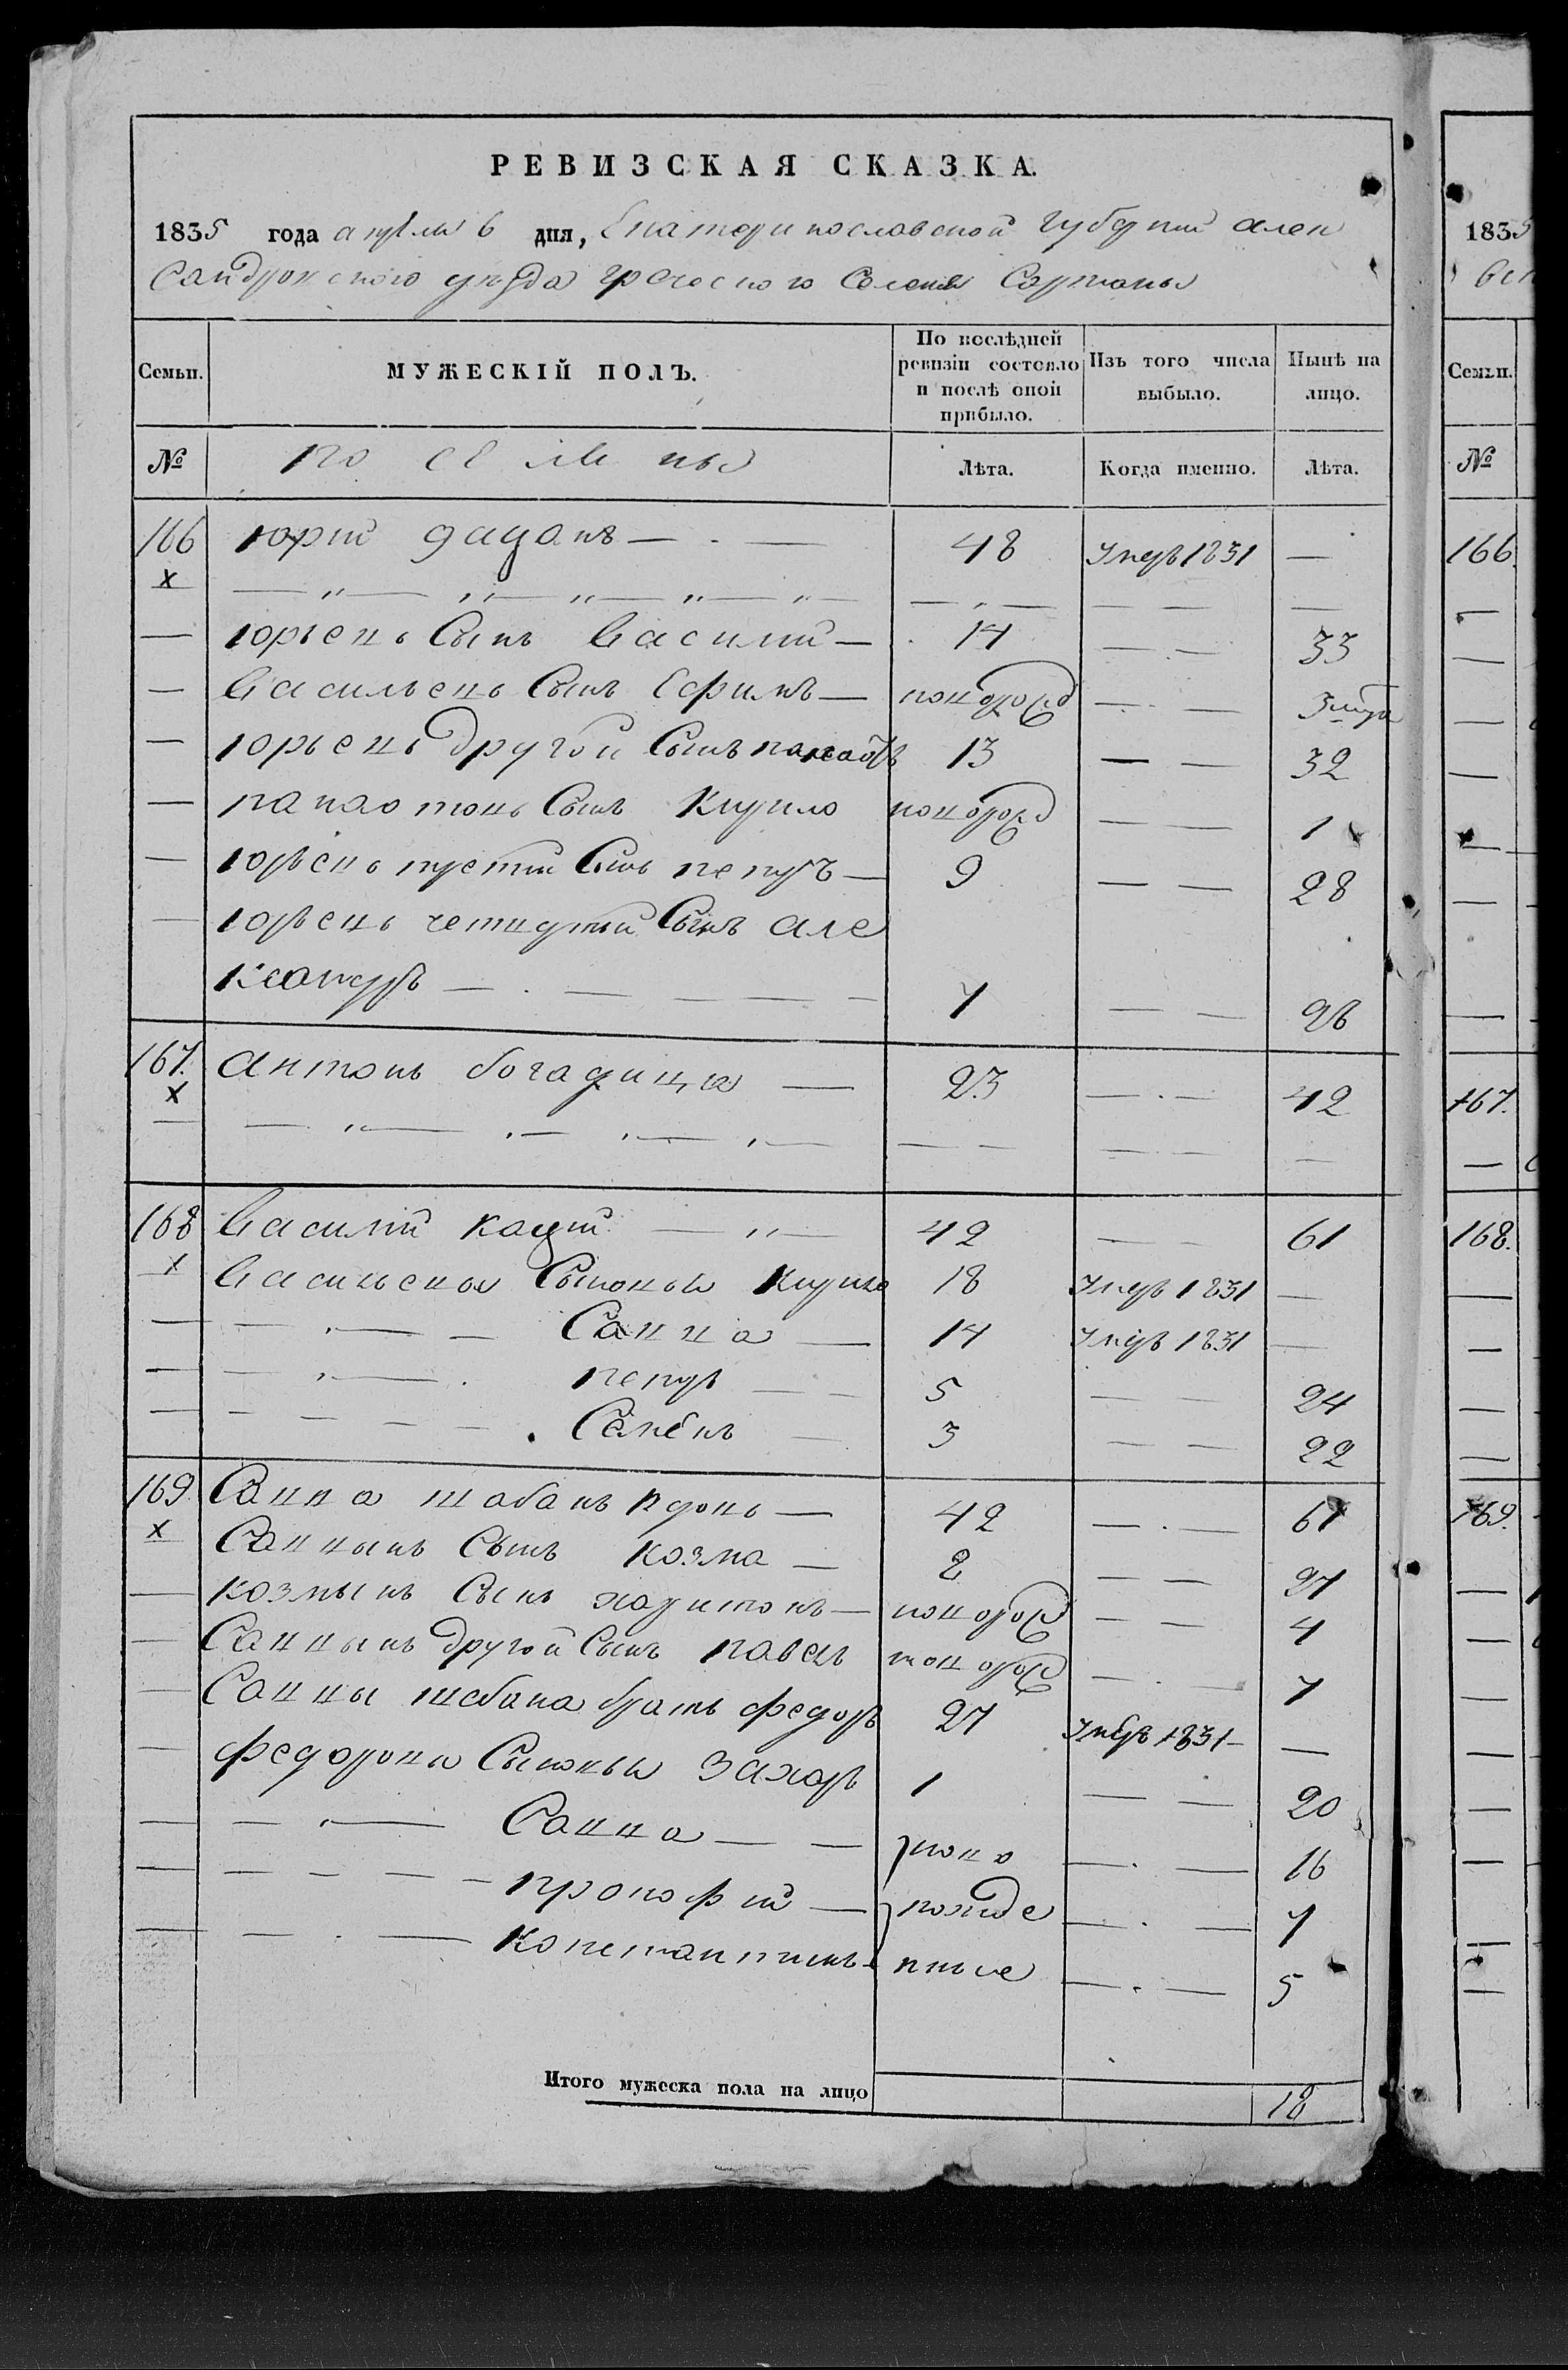 РЕВИЗСКАЯ СКАЗКА.
1835 года апреля 6 дня, Екатеринославской губернии Алек
сандровского уезда греческого Селения Сартаны
Семьи. МУЖЕСКІЙ ПОЛЪ. По послѣдней ревизіи состояло и послѣ оной прибыло. Изъ того числа выбыло. Нынѣ на лицо.
№ поселяны Лѣта. Когда именно. Лѣта.
166 юрий 48 умеръ 1831 —
х
— юрьевъ Сынъ василий — 14 — 33
— васильевъ Сынъ Ефимъ — новорожд — 3
— юрьевъ другой Сынъ 13 — 32
— Сынъ Кирило новорожд — 1
— юрьевъ третий Сынъ петръ — 9 — 28
— юрьевъ четвертый Сынъ але
ксандръ — 7 — 26
167. антонъ богадица — 23 — 42
х
168 василий кации — 42 — 61
х васильевы Сыновья Кирило 18 умеръ 1831 —
— Савва — 14 умеръ 1831 —
— петръ — 5 — 24
— — 3 — 22
169. Савва шабань — 42 — 61
х Саввынъ Сынъ козма — 8 — 27
— козмынъ Сынъ харитонъ — новорожд — 4
— Саввынъ другой Сынъ павелъ новорожд — 7
— Саввы шабана братъ федоръ 27 умеръ 1831 —
— федоровы Сыновья Захаръ 1 — 20
— Савва — ново — 16
— прокофий — рожде — 7
— константинъ нные — 5
Итого мужеска пола на лицо 18
1835
Семьи.
№
166.
167.
168.
169.